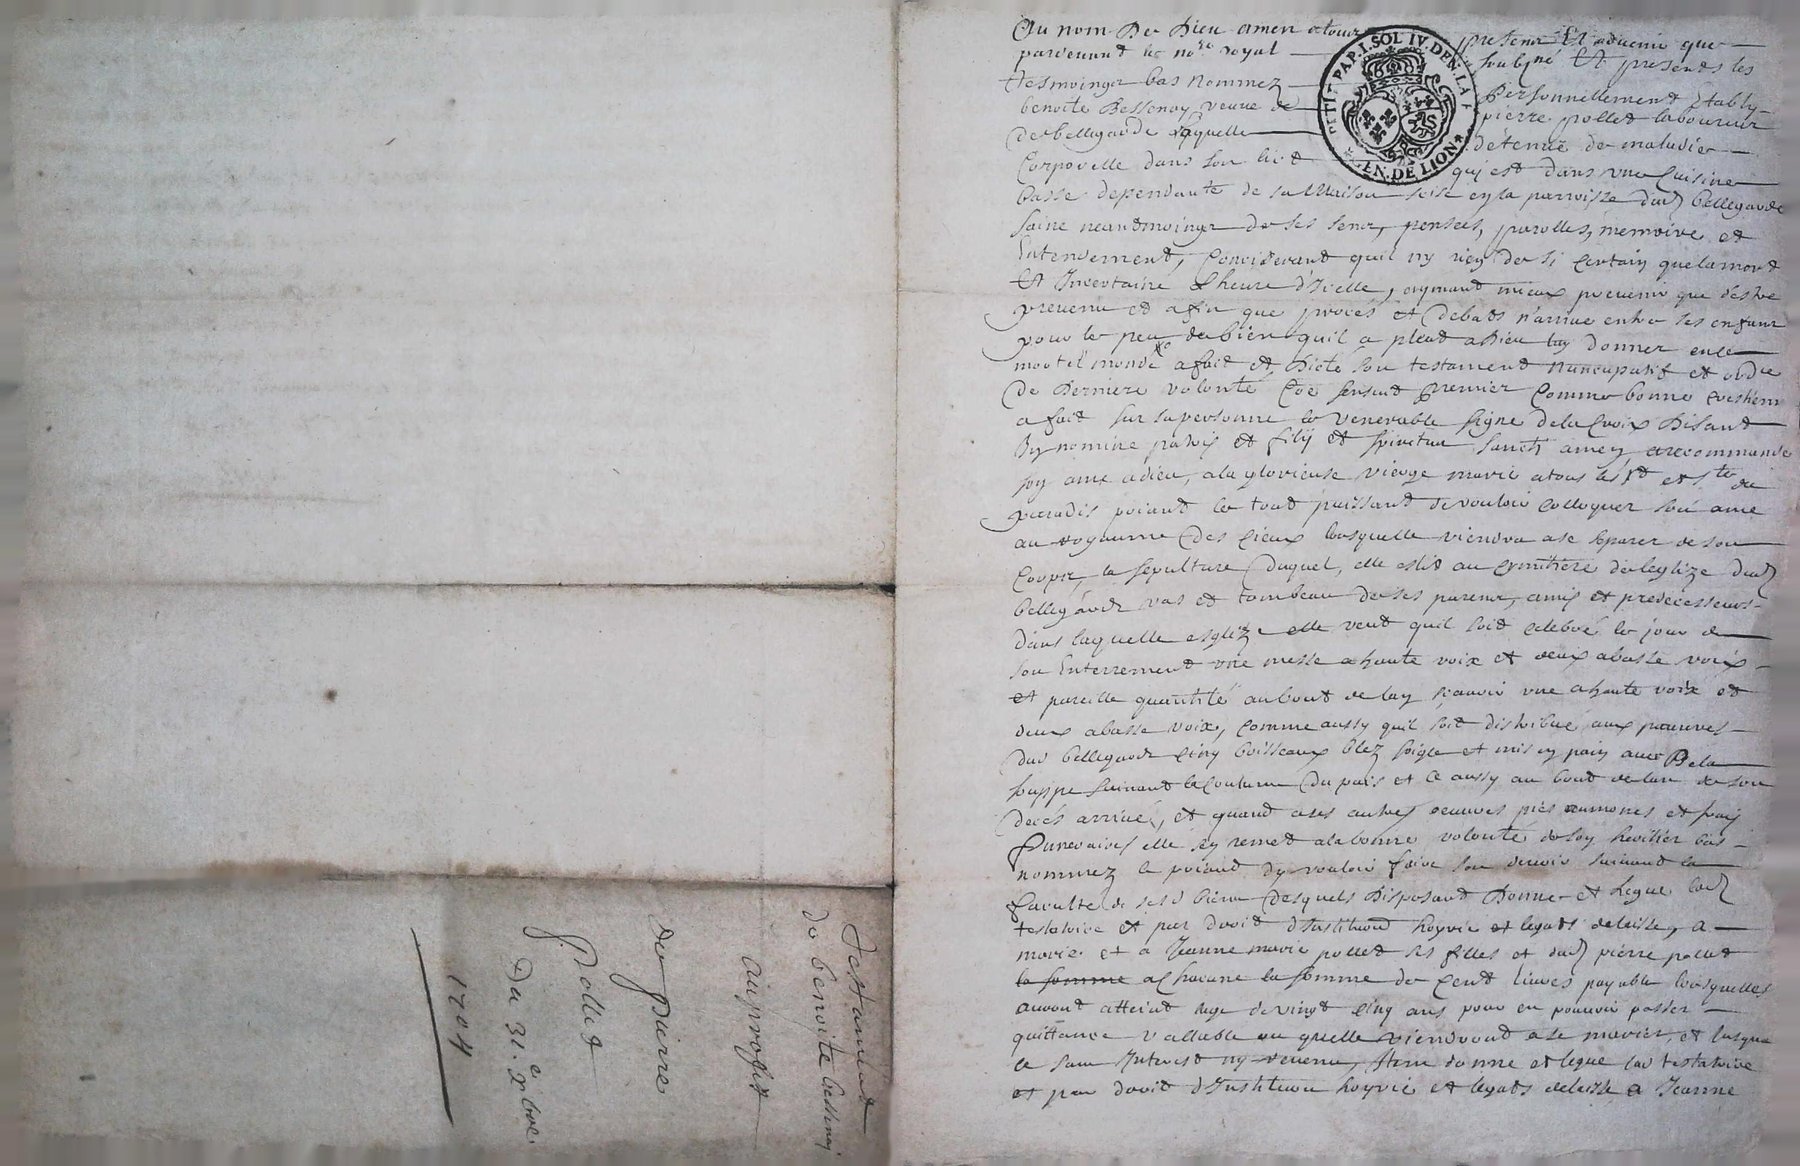 Au nom De Dieu amen a tous presens Et advenir que
pardevand le no.re royal soub.né Et presends les
tesmoings bas nommez Personnellement Estably
benoite Bessenay veuve de pierre pollet laboureur
de bellegarde laquelle détenue de maladie
Corporelle dans son lict qui est dans une Cuisine
basse dependante de sa Maison size en la parroisse dud bellegarde
saine neandmoings de ses sens, pensées, parolles, memoire et
Entendement, Considerant quil ny rien de si Certain que la mort
Et Incertaine L heure d'Icelle, aymant mieux prevenir que d'estre
prevenu et afin que proces et debats n'arrive entre ses enfans
pour le peu de bien quil a pleut a Dieu luy donner en ce
mortel monde a fait et Dicté son testament nuncupatif et ord.re
De Derniere volonté Premier Comme bonne crestienne
a fait sur sa personne le venerable signe de la Croix Disant
In nomine patris et filij et spiritus sancti amen, a recommandé
son ame a dieu, a la glorieuse vierge marie a tous les st et s.te du
paradis priant le tout puissant de vouloir Colloquer son ame
au royaume des Cieux lorsquelle viendra a se separer de son
Corps, la sepulture duquel, elle eslit au Cymitiere de leglize dud
bellegarde vas et tombeau de ses parens, amis et predecesseurs
dans laquelle esglize elle veut quil soit celebré le jour de
son Enterrement une messe a haute voix et deux a basse voix
et pareille quantité au bout de lan scavoir une a haute voix et
deux a basse voix, comme aussy quil soit distribué aux pauvres
dud bellegarde Cinq boisseaux blez soigle et mis en pain avec De la
souppe suivant la Coutume du pais et ce aussy au bout de lan de son
decés arrivé, et quand a ses autres oeuvres pies aumones et frais
funeraires elle sen remet a la bonne volonté de son heritier bas
nommez le priant dy vouloir faire son devoir suivant la
faculté de sesd biens Desquels Disposant Donne et Legue lad
testatrice et par droit d'Institution hoyrie et legats delaisse, a
marie et a Jeanne marie pollet ses filles et dud pierre pollet
la somme a Chacune la somme de Cent livres payable lorsquelles
auront atteint lage de vingt Cinq ans pour en pouvoir passer
quittance vallable ou quelle viendront a se marier, et jusque
ce sans Interest ny revenu, Item donne et legue lad testatrice
et par droit d'Institution hoyrie et legats delaisse a Jeanne
Testament
de benoite bessenay
au proffit
de pierre
Pollet
Du 31.e xbre
1704
PETIT PAP. I. SOL IV. DEN. LA F
GEN. DE LION